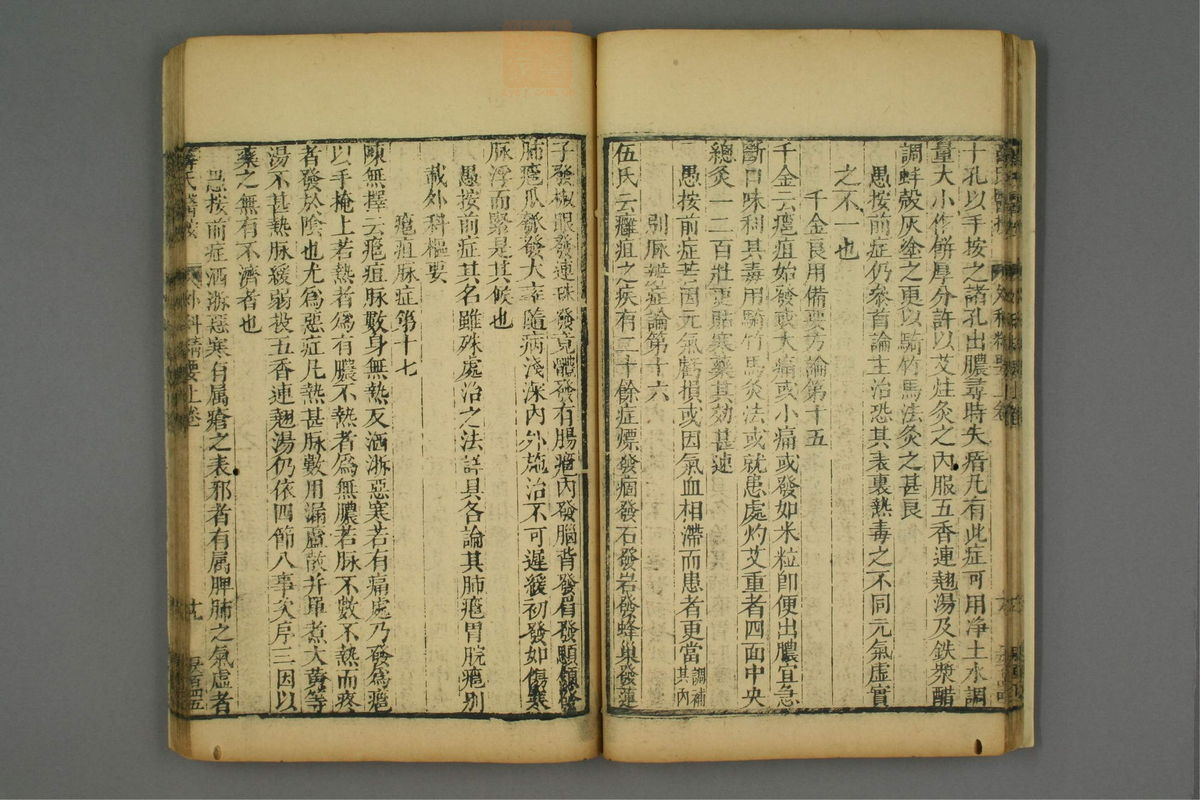 十孔以手按之諸孔出膿尋時失瘡凡有此症可用净土水調
量大小作餅厚分許以艾炷灸之內服五香連翹湯及鉄漿醋
調蚌殼灰塗之更以騎竹馬法灸之甚良
愚按前症仍參首論主治恐其表裏熱毒之不同元氣虛實
之不一也
千金良用備要方論第十五
千金云瘡疽始發或大痛或小痛或發如米粒卽便出膿宜急
斷口味利其毒用騎竹馬灸法或就患處灼艾重者四面中央
總灸一二百壯更貼寒藥其効甚速
愚按前症若因元氣虧損或因氣血相滯而患者更當調補
其內
別脉辨症論第十六
伍氏云癰疽之疾有二十餘症熛發痼發石發岩發蜂巢發蓮
子發椒眼發連珠發竟體發有腸癰內發腦背發眉發顋頷發
肺癰瓜瓠發大率隨病淺深內外施治不可遲緩初發如傷寒
脉浮而緊是其候也
愚按前症其名雖殊處治之法詳具各論其肺癰胃脘癰別
載外科樞要
癰疽脉症第十七
陳無擇云癰疽脉數身無熱反洒淅惡寒若有痛處乃發為癰
以手掩上若熱者為有膿不熱者為無膿若脉不數不熱而疼
者發於陰也尤為惡症凡熱甚脉數用漏蘆散并單煮大黃等
湯不甚熱脉緩弱投五香連翹湯仍依四節八事次序三因以
藥之無有不濟者也
愚按前症洒淅惡寒有属瘡之表邪者有属脾肺之氣虛者
氏醫
外科精要上卷